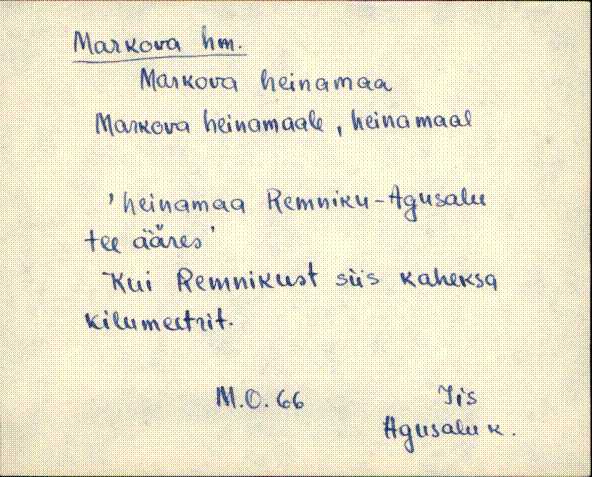 Markova hm.
Markova heinamaa
Markova heinamaale, heinamaal
'heinamaa Remniku-Agusalu
tee ääres'
Kui Remnikust siis kaheksa
kilumeetrit.
M.O. 66
Iis
Agusalu k.